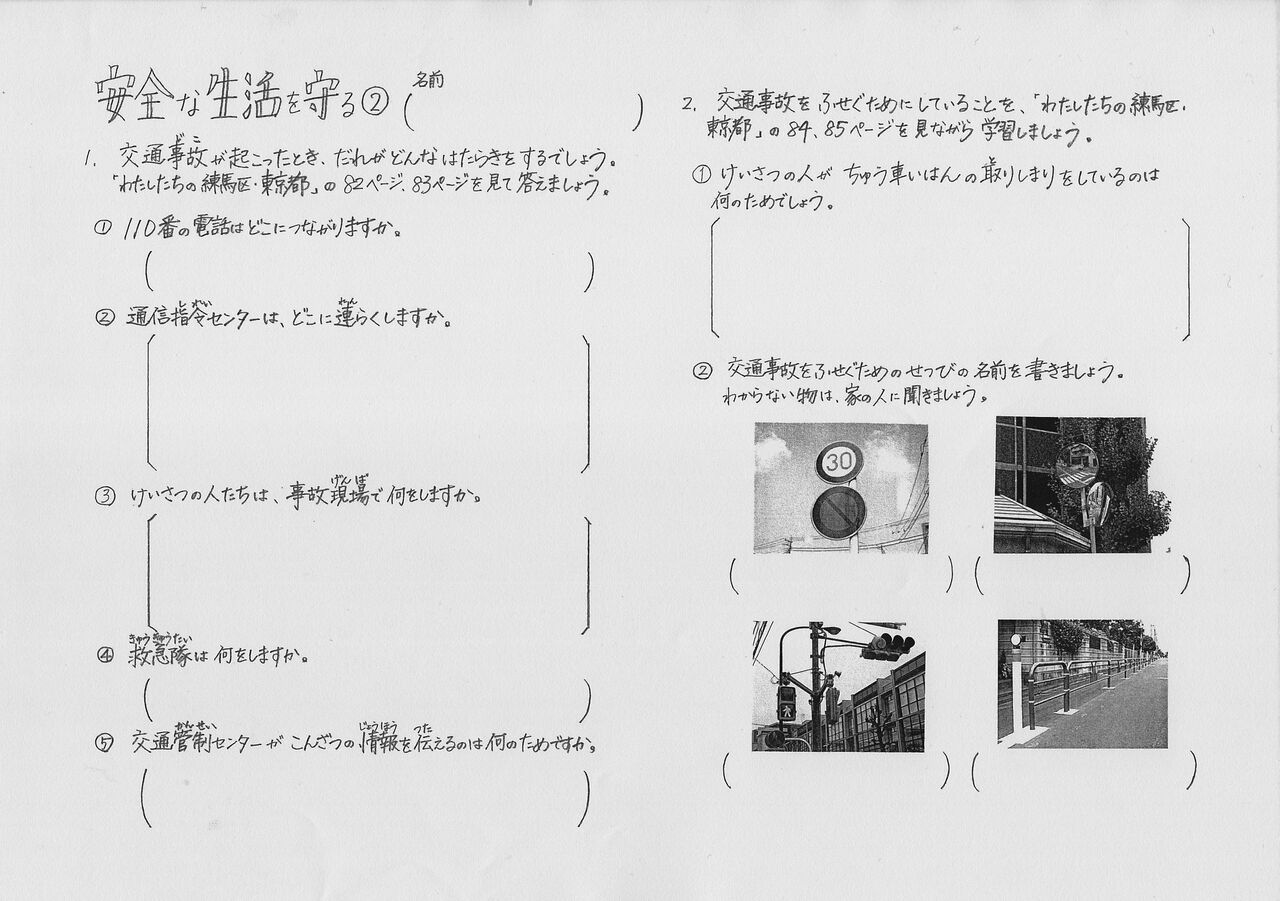 安全な生活を守る②
名前
(　　　)
じこ
1. 交通事故が起こったとき、だれがどんなはたらきをするでしょう。
「わたしたちの練馬区・東京都」の82ページ、83ページを見て答えましょう。
① 110番の電話はどこにつながりますか。
しれい れん
② 通信指令センターは、どこに連らくしますか。
げんば
③ けいさつの人たちは、事故現場で何をしますか。
きゅうきゅうたい
④ 救急隊は何をしますか。
かんせい じょうほう つた
⑤ 交通管制センターがこんざつの情報を伝えるのは何のためですか。
2. 交通事故をふせぐためにしていることを、「わたしたちの練馬区・
東京都」の84、85ページを見ながら学習しましょう。
と
① けいさつの人がちゅう車いはんの取りしまりをしているのは
何のためでしょう。
② 交通事故をふせぐためのせつびの名前を書きましょう。
わからない物は、家の人に聞きましょう。
30